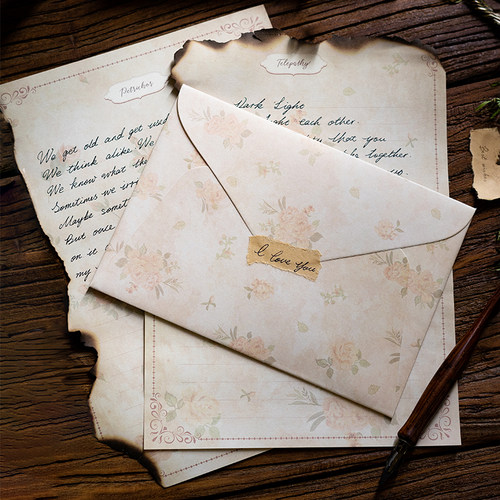 Petrichor
We get old and get used
We think alike. We
We know what the
Sometimes we
Maybe
But
on it
my
Telepathy
Dark Light
each other.
that you
together
I love You